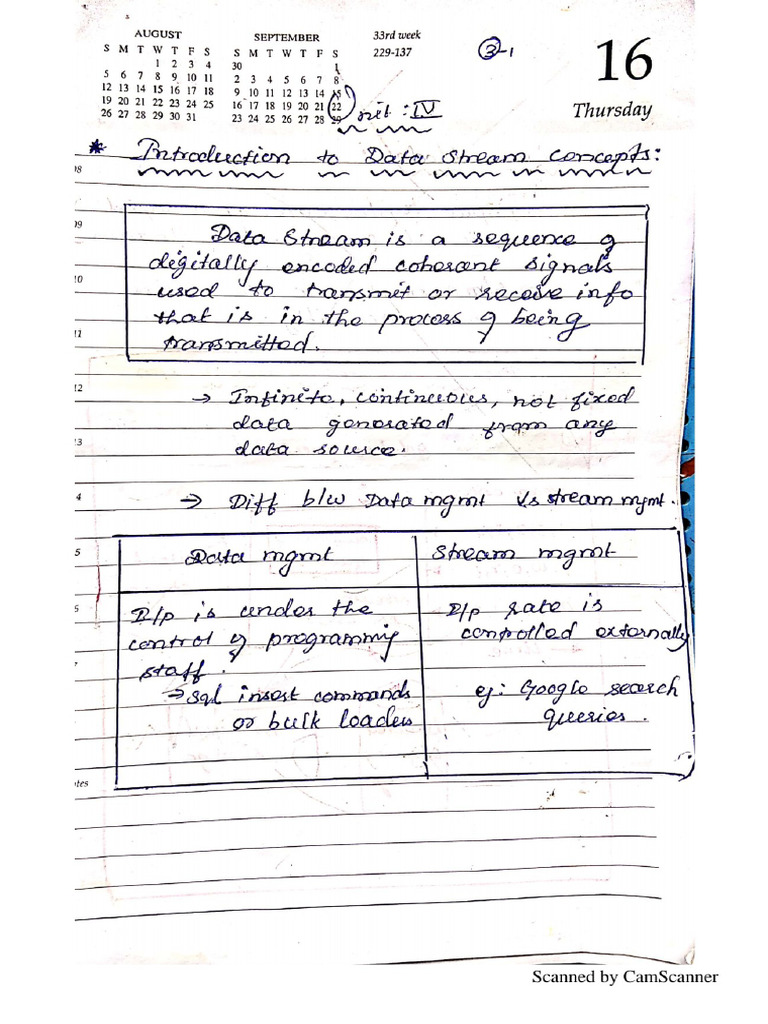 AUGUST
S M T W T F S
1 2 3 4
5 6 7 8 9 10 11
12 13 14 15 16 17 18
19 20 21 22 23 24 25
26 27 28 29 30 31
SEPTEMBER
S M T W T F S
30 1
2 3 4 5 6 7 8
9 10 11 12 13 14 15
16 17 18 19 20 21 22
23 24 25 26 27 28 29
33rd week
229-137
3-1
16
Thursday
Unit : IV
* Introduction to Data Stream concepts:
08
09
10
11
12
Data Stream is a sequence of
digitally encoded coherant signals
used to transmit or receive info
that is in the process of being
transmitted.
→ Infinite, continuous, not fixed
data generated from any
data source.
→ Diff b/w Data mgmt Vs stream mgmt.
Data mgmt
I/p is under the
control of programming
staff.
→ sql insert commands
or bulk loaders
Stream mgmt
I/p rate is
controlled externally
eg: Google search
queries.
Scanned by CamScanner